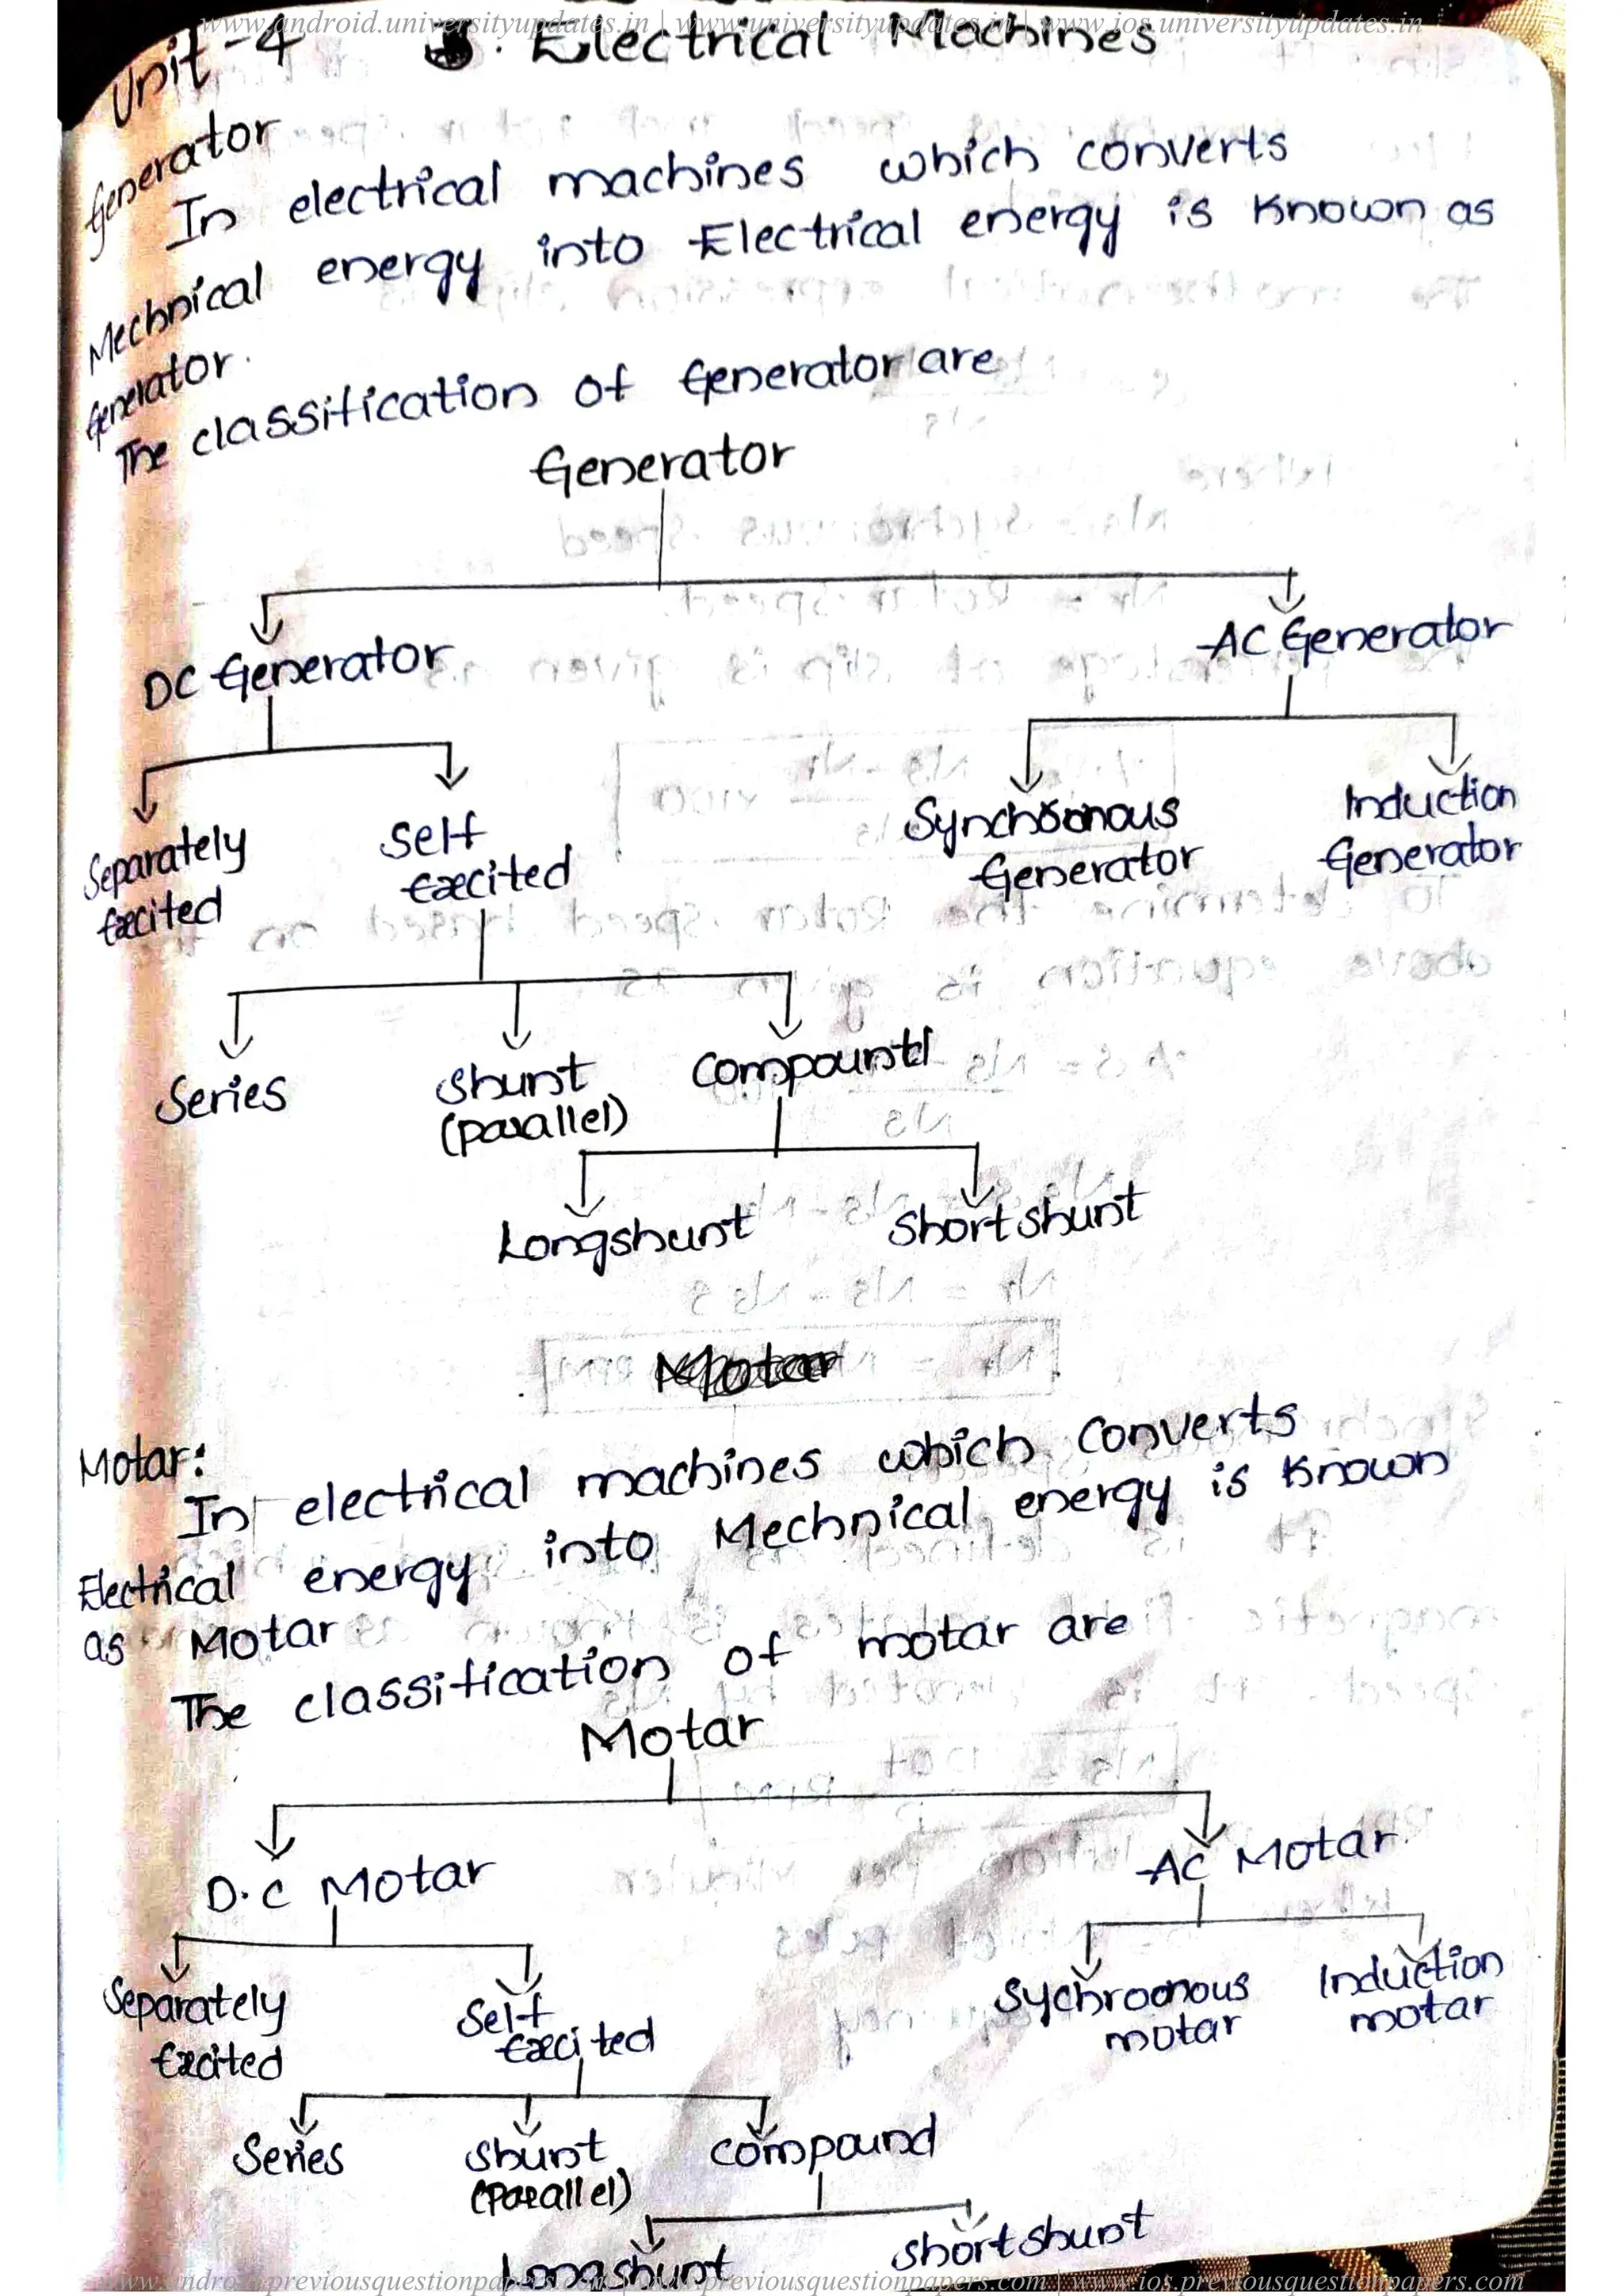 www.android.universityupdates.in | www.universityupdates.in | www.ios.universityupdates.in
Unit-4 : Electrical Machines
Generator
In electrical machines which converts
Mechnical energy into Electrical energy is known as
Generator.
The classification of Generator are
Generator
DC Generator AC Generator
Separately Excited Self Excited Synchronous Generator Induction Generator
Series Shunt (parallel) Compound
Longshunt Short shunt
Motar
Motar:
In electrical machines which converts
Electrical energy into Mechnical energy is known
as Motar
The classification of motar are
Motar
D.C Motar AC Motar
Separately Excited Self Excited Sychroonous motar Induction motar
Series Shunt (Parallel) compound
Longshunt short shunt
www.android.previousquestionpapers.com | www.previousquestionpapers.com | www.ios.previousquestionpapers.com